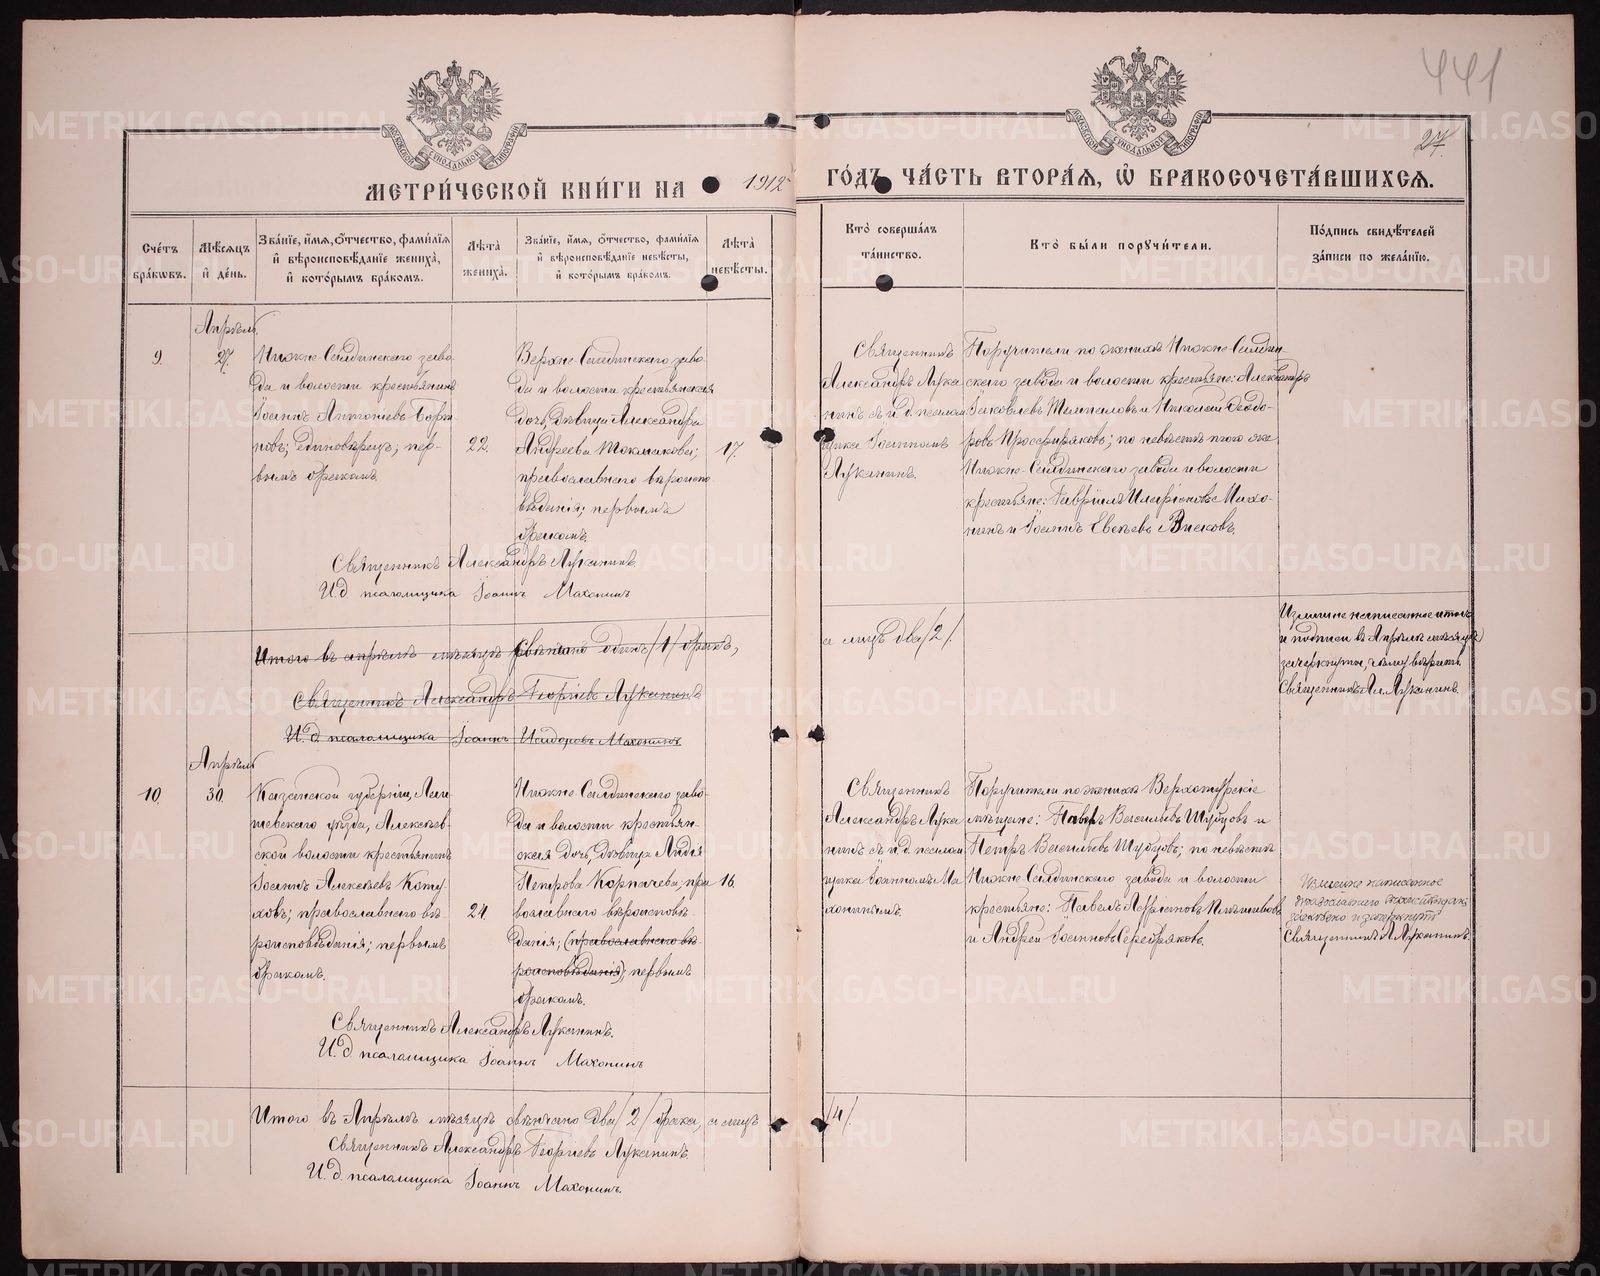 441
27.
МЕТРИ́ЧЕСКОЙ КНИ́ГИ НА 1912
ГО́ДЪ ЧА́СТЬ ВТОРА́Я, Ѡ БРАКОСОЧЕТА́ВШИХСЯ.
Сче́тъ бра́кѡвъ.
Мѣ́сяцъ и҆ де́нь.
Зва́нїе, и҆́мя, ѻ҆́тчество, фами́лїя и҆ вѣроисповѣ́данїе жениха̀, и҆ кото́рымъ бра́комъ.
Лѣ́та жениха̀.
Зва́нїе, и҆́мя, ѻ҆́тчество, фами́лїя и҆ вѣроисповѣ́данїе невѣ́сты, и҆ кото́рымъ бра́комъ.
Лѣ́та невѣ́сты.
Кто̀ соверша́лъ та́инство.
Кто̀ бы́ли поручи́тели.
По́дпись свидѣ́телей за́писи по жела́нїю.
9.
Апрѣль
27.
Нижне-Салдинскаго заво-
да и волости крестьянинъ
Іоаннъ Антоніевъ
единовѣрецъ; пер-
вымъ бракомъ.
22.
Верхне-Салдинскаго заво-
да и волости крестьянская
дочь, дѣвица Александра
Андреева Токмакова;
православнаго вѣроиспо-
вѣданія; первымъ
бракомъ.
17.
Священникъ
Александръ Лука-
нинъ съ и.д. псалом-
щика Іоанномъ
Поручители по женихѣ Нижне-Салдин-
скаго завода и волости крестьяне: Александръ
Іаковлевъ и Николай Ѳеодо-
ровъ по невѣстѣ того же
Нижне-Салдинскаго завода и волости
крестьяне: Гавріилъ Иларіоновъ Махо-
нинъ и Іоаннъ
Священникъ Александръ Луканинъ.
И.д. псаломщика Іоаннъ Махонинъ
Итого въ апрѣлѣ мѣсяцѣ свѣнчано одинъ /1/ бракъ,
а лицъ два /2/.
Священникъ Александръ Георгіевъ Луканинъ
И.д. псаломщика Іоаннъ Исидоровъ Махонинъ
Излишне написанное итогъ
и подписи въ Апрѣлѣ мѣсяцѣ
зачеркнуты, чему вѣрить.
Священникъ Ал. Луканинъ.
10.
Апрѣль
30.
Казанской губерніи, Лаи-
шевскаго уѣзда, Алексѣев-
ской волости крестьянинъ
Іоаннъ Алексѣевъ
православнаго вѣ-
роисповѣданія; первымъ
бракомъ.
24.
Нижне-Салдинскаго заво-
да и волости крестьян-
ская дочь, дѣвица Лидія
Петрова Корпачева; пра-
вославнаго вѣроисповѣ-
данія; (православнаго вѣ-
роисповѣданія); первымъ
бракомъ.
16.
Священникъ
Александръ Лука-
нинъ съ и.д. псалом-
щика Іоанномъ Ма-
хонинымъ.
Поручители по женихѣ Верхотурскіе
мѣщане: Василіевъ Шубцовъ и
Петръ Василіевъ Шубцовъ; по невѣстѣ
Нижне-Салдинскаго завода и волости
крестьяне: Павелъ
и Андрей Іоанновъ Серебряковъ.
Излишне написанное
православнаго вѣроисповѣданія
и зачеркнуто
Священникъ А. Луканинъ.
Священникъ Александръ Луканинъ.
И.д. псаломщика Іоаннъ Махонинъ
Итого въ Апрѣлѣ мѣсяцѣ свѣнчано два /2/ брака, а лицъ /4/.
Священникъ Александръ Георгіевъ Луканинъ.
И.д. псаломщика Іоаннъ Махонинъ.
METRIKI.GASO-URAL.RU